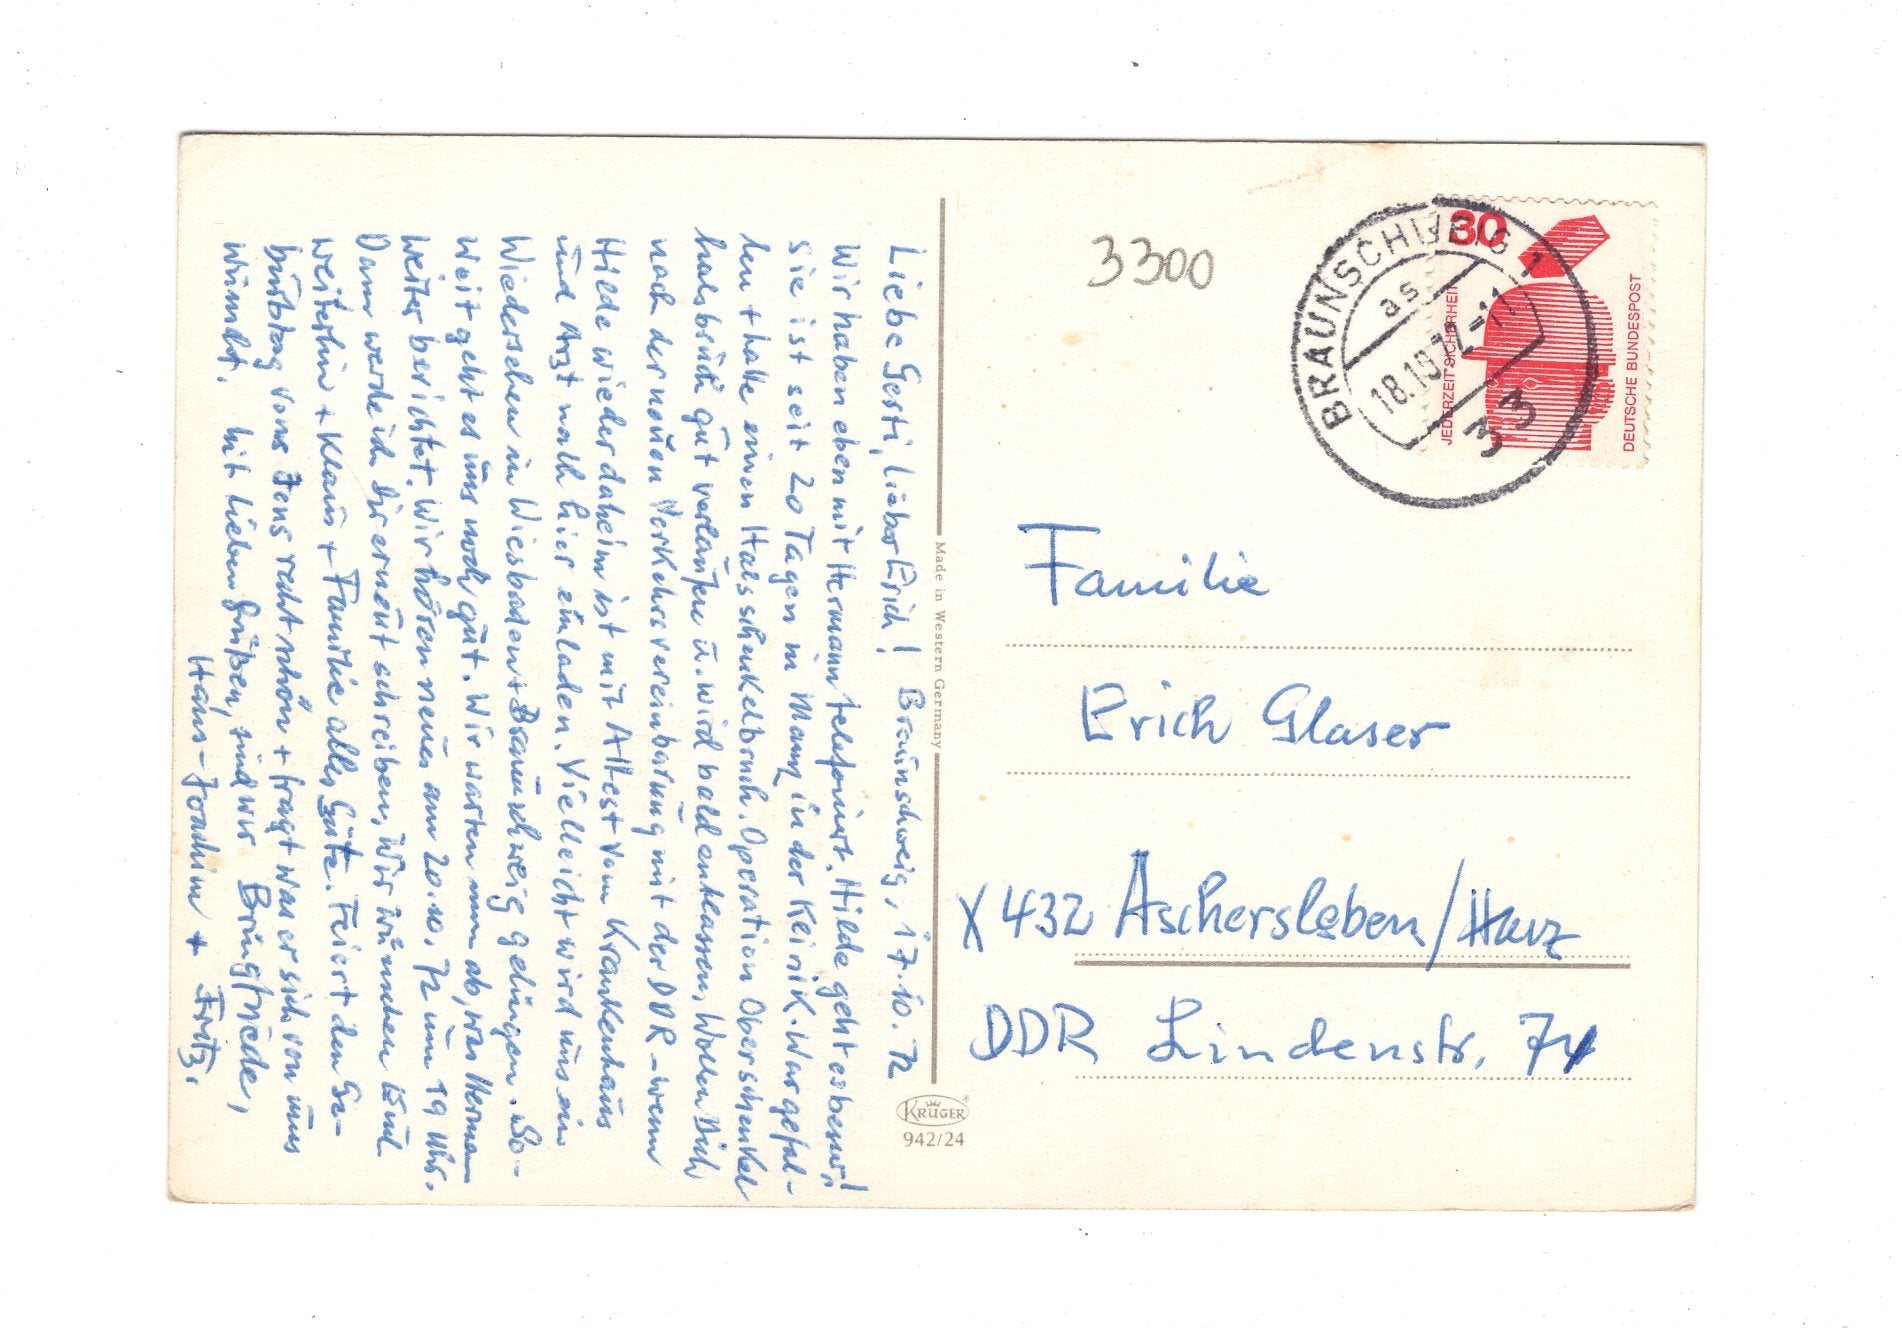 Liebe Gerti, lieber Erich! Braunschweig, 17.10.72
Wir haben eben mit Hermann telefoniert. Hilde geht es besser!
Sie ist seit 20 Tagen in Mainz in der Keinik. War gefal-
len + hatte einen Halsschenkelbruch. Operation Oberschenkel
halsbruch gut verlaufen u. wird bald entlassen. Wollen Dich
nach der neuen Verkehrsvereinbarung mit der DDR – wenn
Hilde wieder daheim ist mit Attest vom Krankenhaus
und Arzt nach hier einladen. Vielleicht wird uns ein
Wiedersehen in Wiesbaden + Braunschweig gelingen. So-
weit geht es uns noch gut. Wir warten nun ab, was Herman
weiter berichtet. Wir hören neues am 20.10.72 um 19 Uhr.
Dann werde ich Dir erneut schreiben, Wir wünschen Euch
weiterhin + Klaus + Familie alles Gute. Feiert den Ge-
burtstag vons Jens recht schön + fragt was er sich von uns
wünscht. Mit lieben Grüßen, sind wir Bringfriede,
Hans-Joachim + Fritz.
Made in Western Germany
KRÜGER
942/24
3300
BRAUNSCHWEIG 1
as
18.10.72-11
33
30
JEDERZEIT SICHERHEIT
DEUTSCHE BUNDESPOST
Familie
Erich Glaser
X 432 Aschersleben/Harz
DDR Lindenstr. 74